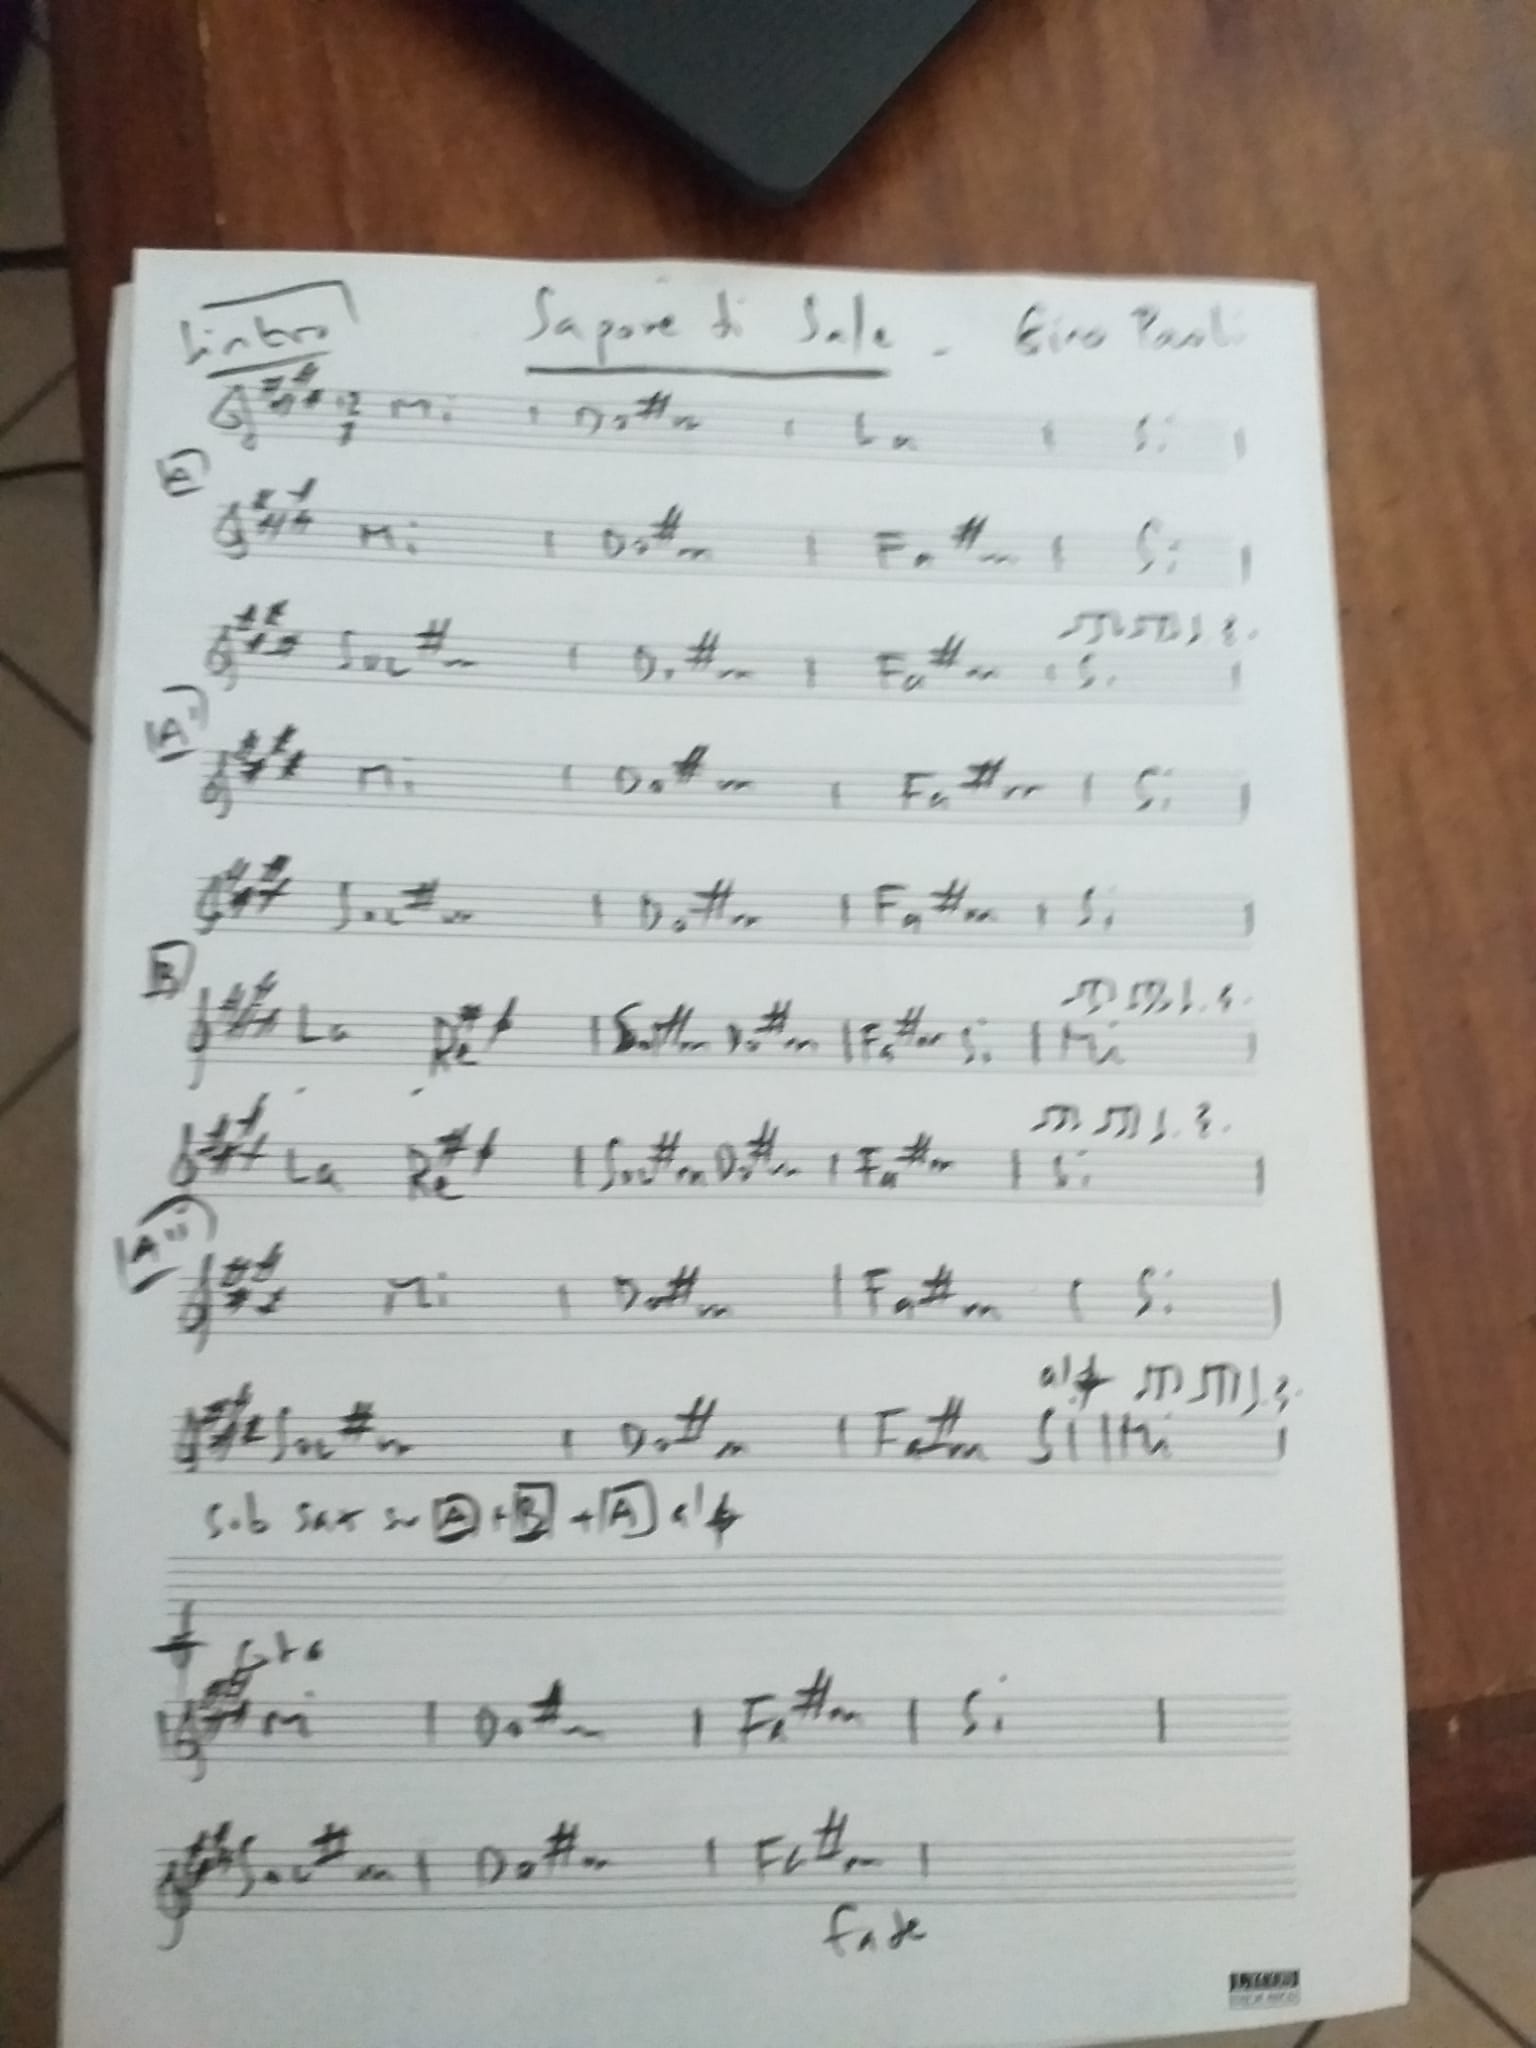 Intro Sapore di Sale - Gino Paoli
12 8 Mi | Do#m | La | Si |
A
Mi | Do#m | Fa#m | Si |
Sol#m | Do#m | Fa#m | Si |
A'
Mi | Do#m | Fa#m | Si |
Sol#m | Do#m | Fa#m | Si |
B
La Re# | Sol#m Do#m | Fa#m Si | Mi |
La Re# | Sol#m Do#m | Fa#m | Si |
A''
Mi | Do#m | Fa#m | Si |
al
Sol#m | Do#m | Fa#m Si | Mi |
Sax su A + B + A al
Mi | Do#m | Fa#m | Si |
Sol#m | Do#m | Fa#m |
Fade